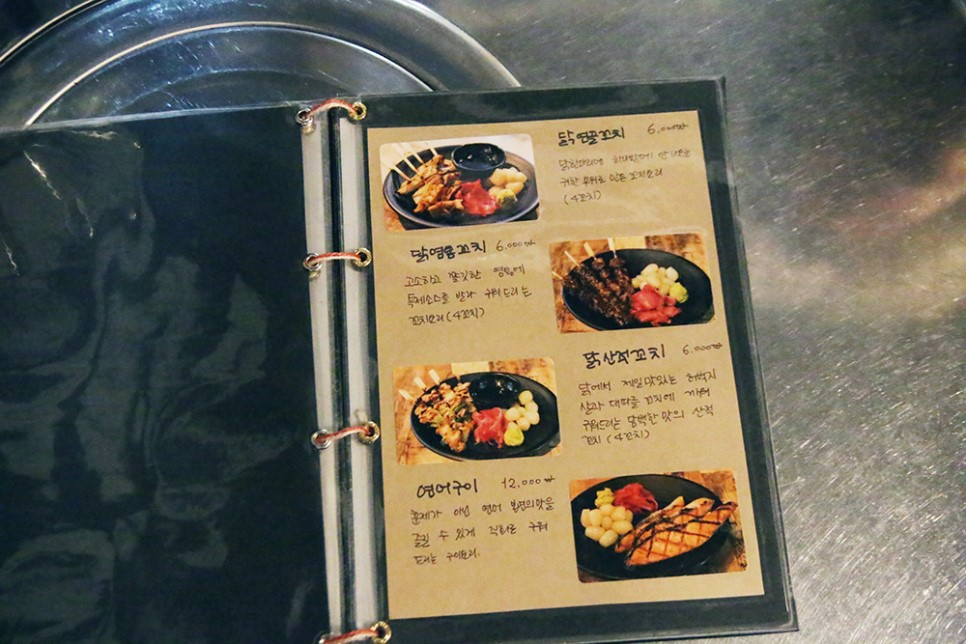 닭연골꼬치 6,000₩
닭한마리에
귀한 부위로 만든 꼬치요리
(4꼬치)
닭염통꼬치 6,000₩
고소하고 쫄깃한 염통에
특제소스를 발라 구워드리는
꼬치요리 (4꼬치)
닭산적꼬치 6,000₩
닭에서 제일맛있는 허벅지
살과 대파를 꼬치에 끼워
구워드리는 담백한 맛의 산적
꼬치 (4꼬치)
연어구이 12,000₩
훈제가 아닌 연어 본연의맛을
즐길 수 있게 직화로 구워
드리는 구이요리.